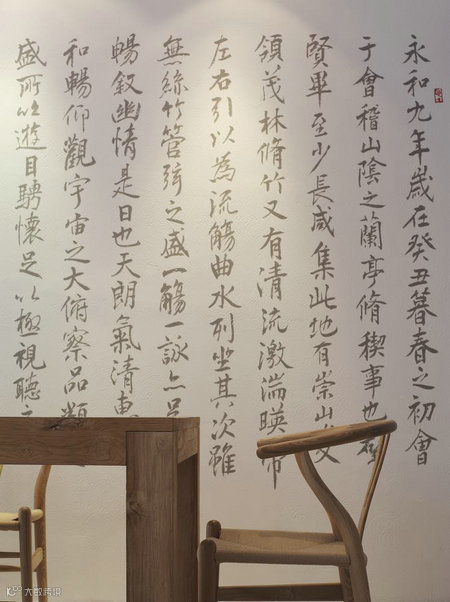 永和九年歲在癸丑暮春之初會
于會稽山陰之蘭亭脩稧事也群
賢畢至少長咸集此地有崇山峻
領茂林脩竹又有清流激湍暎帶
左右引以為流觴曲水列坐其次雖
無絲竹管弦之盛一觴一詠亦足
暢叙幽情是日也天朗氣清惠
和暢仰觀宇宙之大俯察品類
盛所以遊目騁懷足以極視聽之
大数跨境